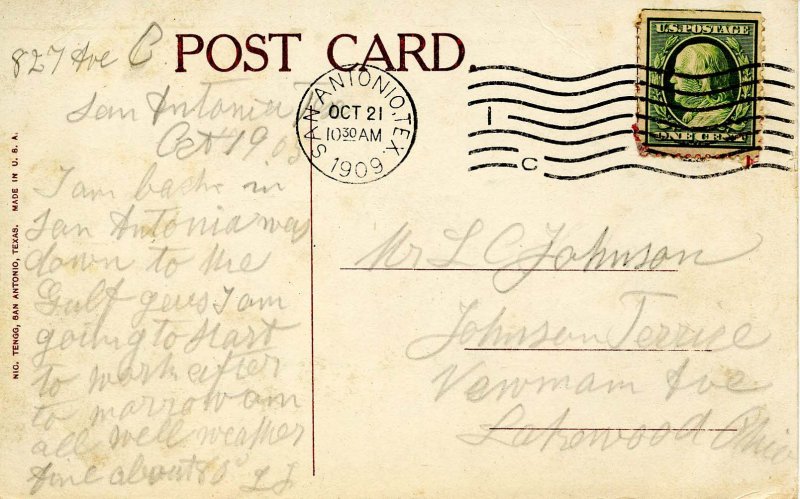 827 Ave C
POST CARD.
San Antonia Tex
Oct 19 09
I am back in
San Antonia was
down to the
Gulf gess I am
going to start
to work after
to marrow am
all well weather
fine about 85° L J
NIC. TENGG, SAN ANTONIO, TEXAS. MADE IN U. S. A.
SAN ANTONIO, TEX.
OCT 21
10 30 AM
1909
I
C
U.S. POSTAGE
ONE CENT
Mr L C Johnson
Johnson Terrise
Newmam Ave
Lakewood Ohio